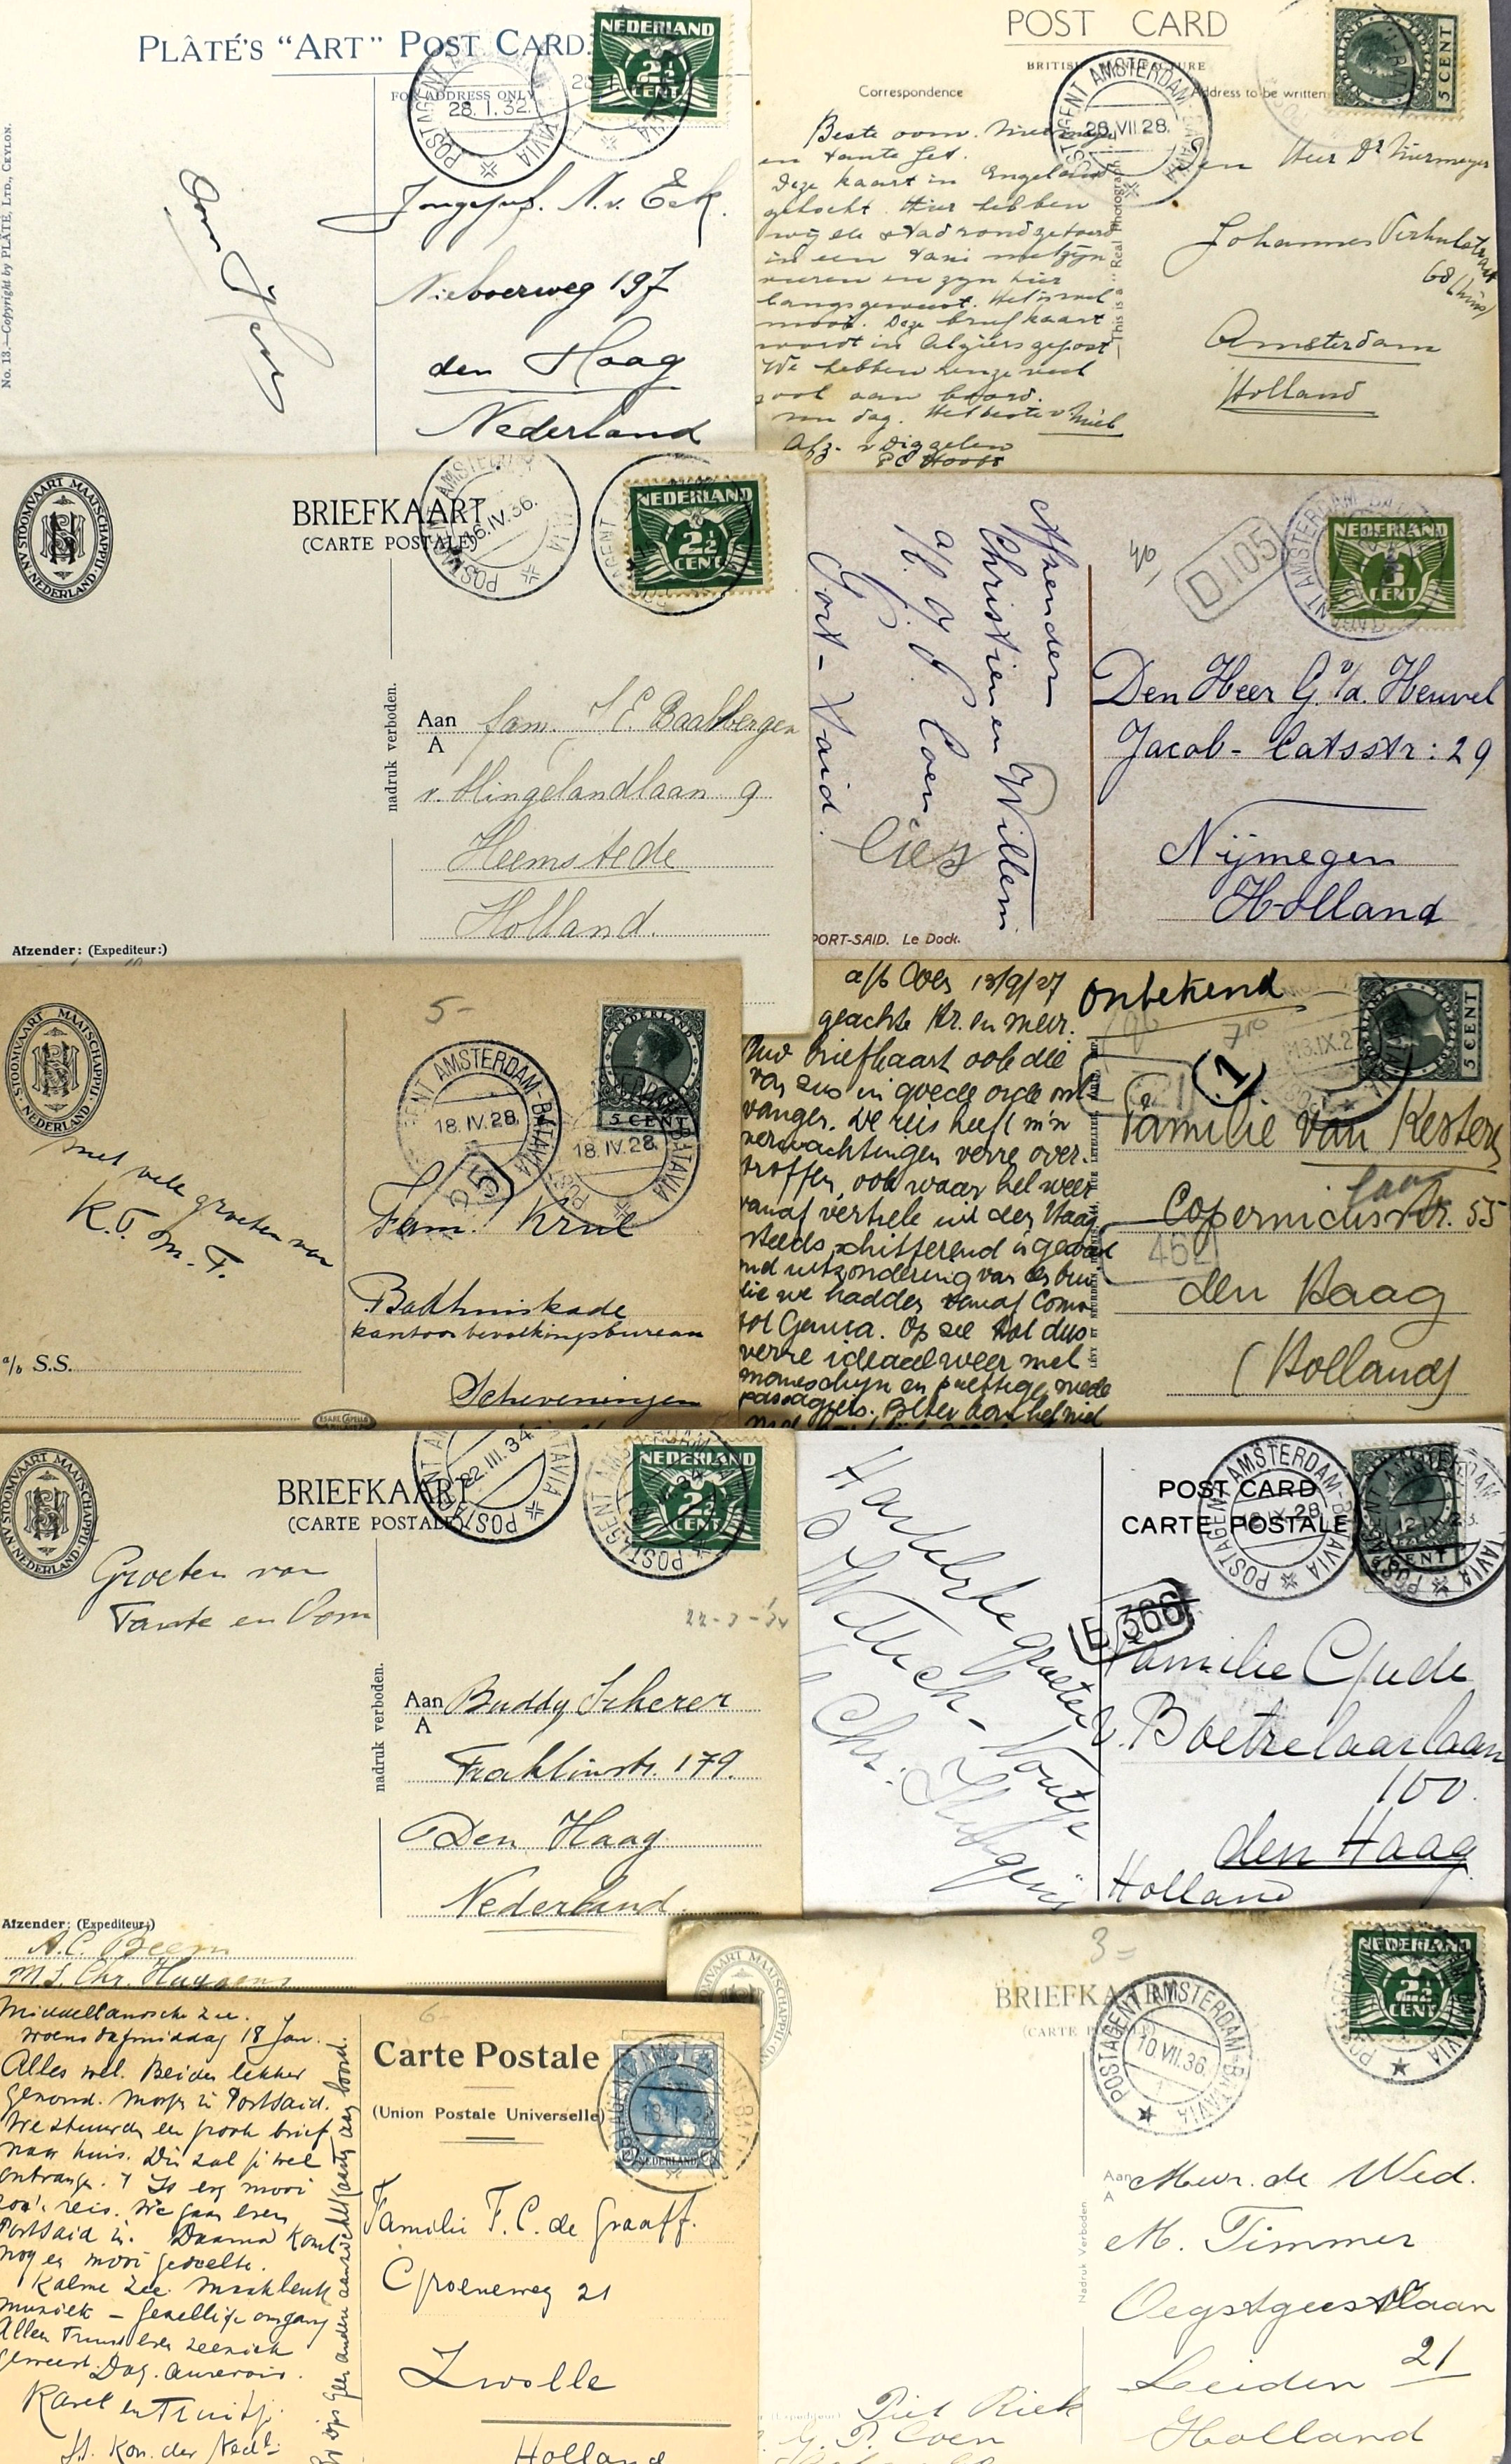 PLÂTÉ'S "ART" POST CARD.
FOR ADDRESS ONLY
No. 13.—Copyright by PLÂTÉ, LTD., CEYLON.
NEDERLAND
2½
CENT
POSTAGENT AMSTERDAM BATAVIA
28. 1. 32.
N. v. Eck.
Nieboerweg 197
den Haag
Nederland
POST CARD
BRITISH MANUFACTURE
Correspondence
Address to be written
This is a Real Photograph
5 CENT
POSTAGENT AMSTERDAM BATAVIA
28.VII 28.
Beste oom
en tante Jet.
Deze kaart in Engeland
gekocht. Hier hebben
wij de stad rondgetoerd
in een taxi met zijn
vieren en zijn hier
langs geweest. Het is wel
mooi. Deze briefkaart
wordt in Algiers gepost
We hebben
ook aan boord.
dag. Het beste v Miel
Afz. v Diggelen
P C Hooft
Den Heer Dr Niermeyer
Johannes Verhulststraat
68 (huis)
Amsterdam
Holland
STOOMVAART MAATSCHAPPIJ NEDERLAND
BRIEFKAART
(CARTE POSTALE)
16.IV.36.
NEDERLAND
2½
CENT
nadruk verboden.
Aan
A
fam. J E. Baalbergen
v. Slingelandlaan 9
Heemstede
Holland.
Afzender: (Expediteur:)
Afzender
Christien en Willem
a/b. J. P. Coen
Port-Said.
PORT-SAID. Le Dock.
D.105
NEDERLAND
CENT
Den Heer G. v/d. Heuvel
Jacob-Catsstr: 29
Nijmegen
Holland
STOOMVAART MAATSCHAPPIJ NEDERLAND
5-
NEDERLAND
5 CENT
POSTAGENT AMSTERDAM-BATAVIA
18. IV. 28.
18. IV. 28.
met vele groeten van
K.T. M. F.
Fam. Krul
Badhuiskade
kantoor bevolkingsbureau
Scheveningen
a/b S.S.
a/b Coen 13/9/27
geachte Hr. en mevr.
Uw briefkaart ook die
van zus in goede orde ont-
vangen. De reis heeft m'n
verwachtingen verre over-
troffen, ook waar het weer
vanaf vertrek uit den Haag
steeds schitterend is geweest
met uitzondering van de bui
die we hadden vanaf Como
tot Genua. Op zee tot dus
verre ideaal weer met
maneschijn en prettige mede
passagiers. Beter kon het niet
onbekend
1
13.IX.27
5 CENT
Familie van Kesteren
Copernicusstr. 55
den Haag
(Holland)
STOOMVAART MAATSCHAPPIJ NEDERLAND
BRIEFKAART
(CARTE POSTALE)
22.III.34
NEDERLAND
2½
CENT
Groeten van
Tante en Oom
22-3-'34
nadruk verboden.
Aan
A
Buddy Scherer
Franklinstr. 179.
Den Haag
Nederland.
Afzender: (Expediteur:)
A.C. Beem
M.S. Chr. Huygens
POST CARD
CARTE POSTALE
POSTAGENT AMSTERDAM-BATAVIA
CENT
Hartelijke groeten v.
Chr. Huygens
E 366
Familie Gude
Boetzelaarlaan
100.
den Haag
Holland
Middellandsche Zee.
Woensdagmiddag 18 Jan.
Alles wel. Beiden lekker
gezond. Morgen in Portsaid.
We stuurden een groote brief
naar huis. Die zal je wel
ontvangen. 't Is erg mooi
zoo'n reis. We gaan even
Portsaid in. Daarna komt
nog een mooi gedeelte.
Kalme zee.
muziek - gezellige omgang
Alleen Truus even zeeziek
geweest. Dag. Aurevoir.
Karel en Truitje.
SS. Kon. der Nedl:
Carte Postale
(Union Postale Universelle)
NEDERLAND
Familie F. C. de Graaff.
Groeneweg 21
Zwolle
Holland
3=
BRIEFKAART
(CARTE
POSTAGENT AMSTERDAM-BATAVIA
10.VII.36.
NEDERLAND
2½
CENT
Nadruk Verboden
Aan
A
Mevr. de Wed.
M. Timmer
Oegstgeesterlaan
21
Leiden
Holland
Piet Riek
J. P. Coen